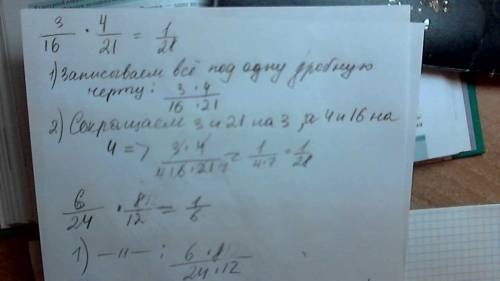 3/16 · 4/21 = 1/28
1) Записываем всё под одну дробную
черту: 3·4/16·21
2) Сокращаем 3 и 21 на 3, а 4 и 16 на
4 => 3·4/4 16·21 7 = 1/4·7 = 1/28
6/24 · 8/12 = 1/6
1) —"— : 6·8/24·12